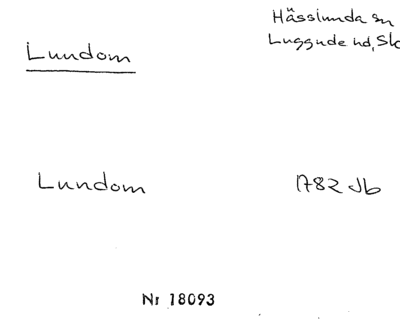 Lundom
Hässlunda sn
Luggude hd, Sk
Lundom
1782 Jb
Nr 18093